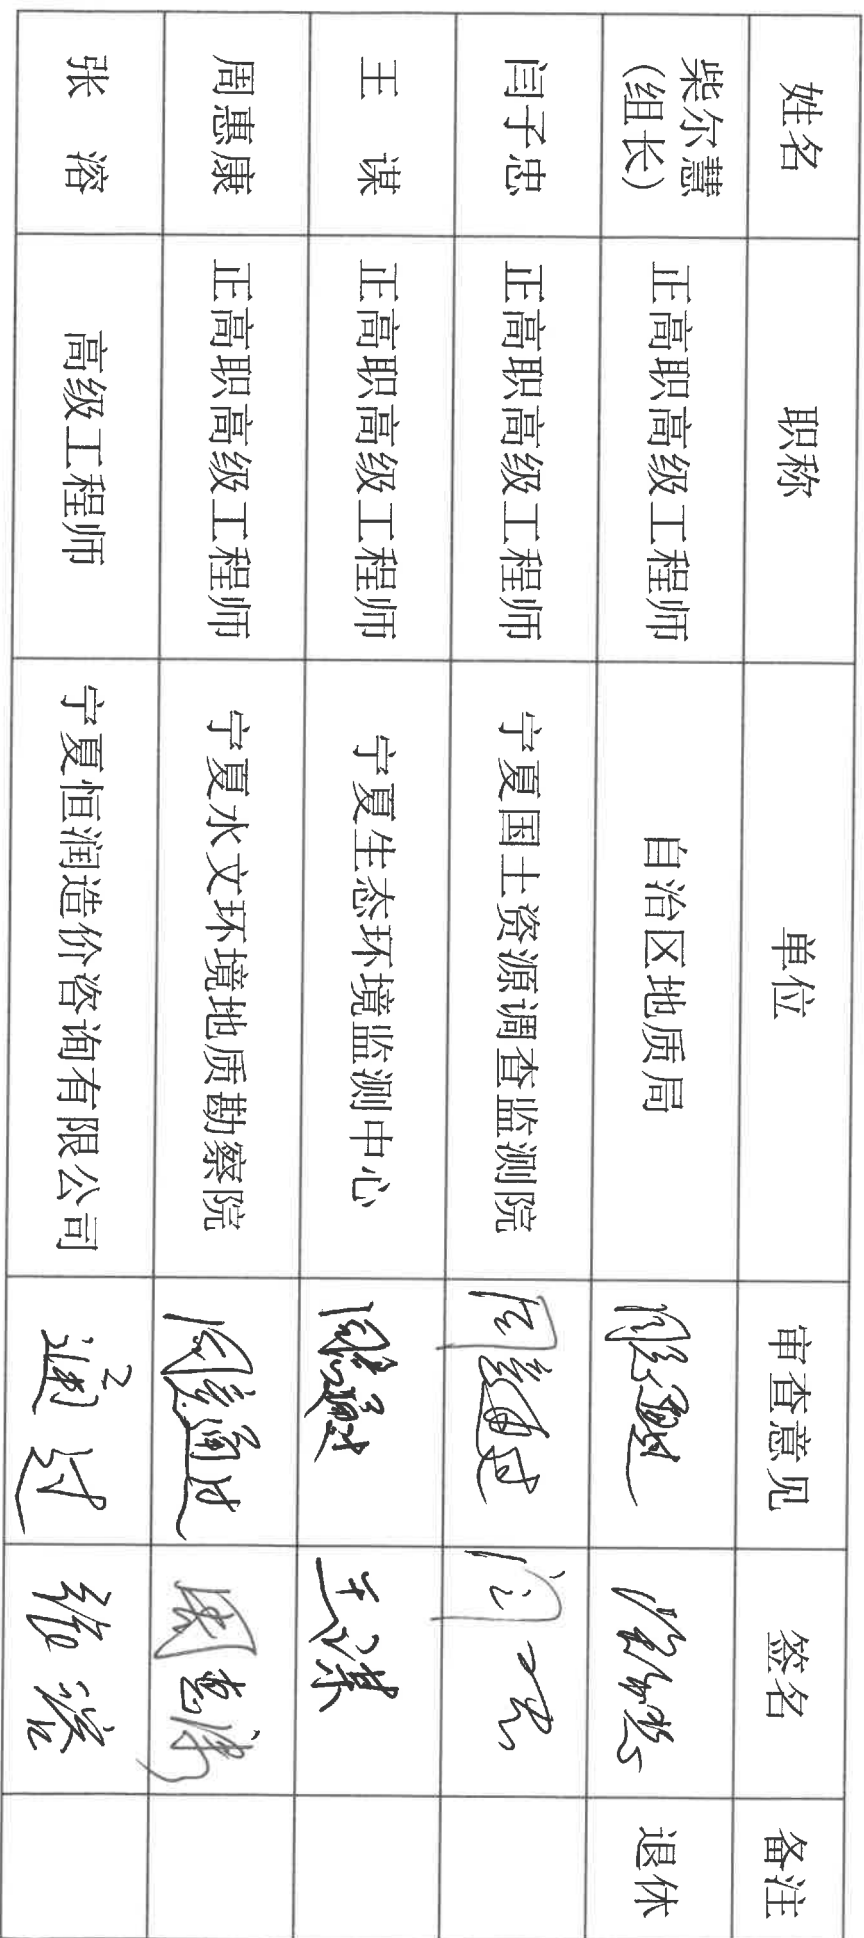 姓名 职称 单位 审查意见 签名 备注
柴尔慧（组长） 正高职高级工程师 自治区地质局 同意通过 柴尔慧 退休
闫子忠 正高职高级工程师 宁夏国土资源调查监测院 同意通过 闫子忠
王 谋 正高职高级工程师 宁夏生态环境监测中心 同意通过 王谋
周惠康 正高职高级工程师 宁夏水文环境地质勘察院 同意通过 周惠康
张 溶 高级工程师 宁夏恒润造价咨询有限公司 通过 张溶